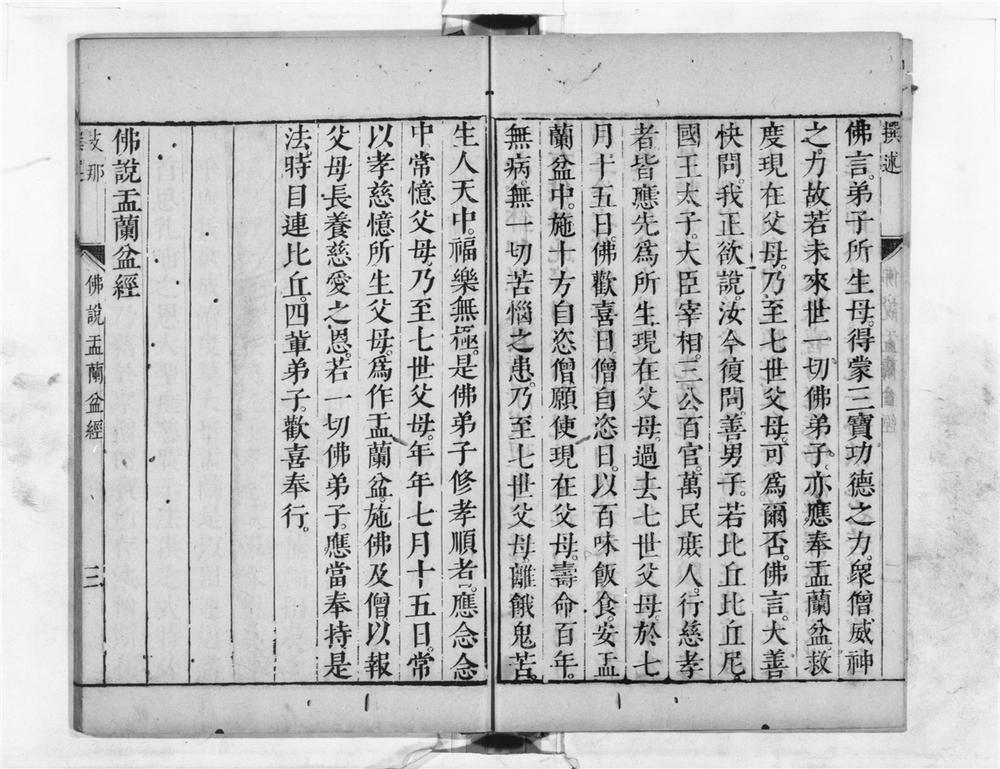 撰述
佛言。弟子所生母。得蒙三寶功德之力。眾僧威神
之力故。若未來世一切佛弟子。亦應奉盂蘭盆救
度現在父母。乃至七世父母。可為爾否。佛言。大善
快問。我正欲說。汝今復問。善男子。若比丘比丘尼
國王太子。大臣宰相。三公百官。萬民庶人。行慈孝
者皆應先爲所生現在父母。過去七世父母。於七
月十五日佛歡喜日僧自恣日。以百味飯食。安盂
蘭盆中。施十方自恣僧願使現在父母。壽命百年。
無病。無一切苦惱之患。乃至七世父母離餓鬼苦。
生人天中。福樂無極。是佛弟子修孝順者。應念念
中常憶父母。乃至七世父母。年年七月十五日。常
以孝慈憶所生父母。爲作盂蘭盆。施佛及僧。以報
父母長養慈愛之恩。若一切佛弟子。應當奉持是
法。時目連比丘。四輩弟子。歡喜奉行。
佛說盂蘭盆經
支那
佛說盂蘭盆經
三